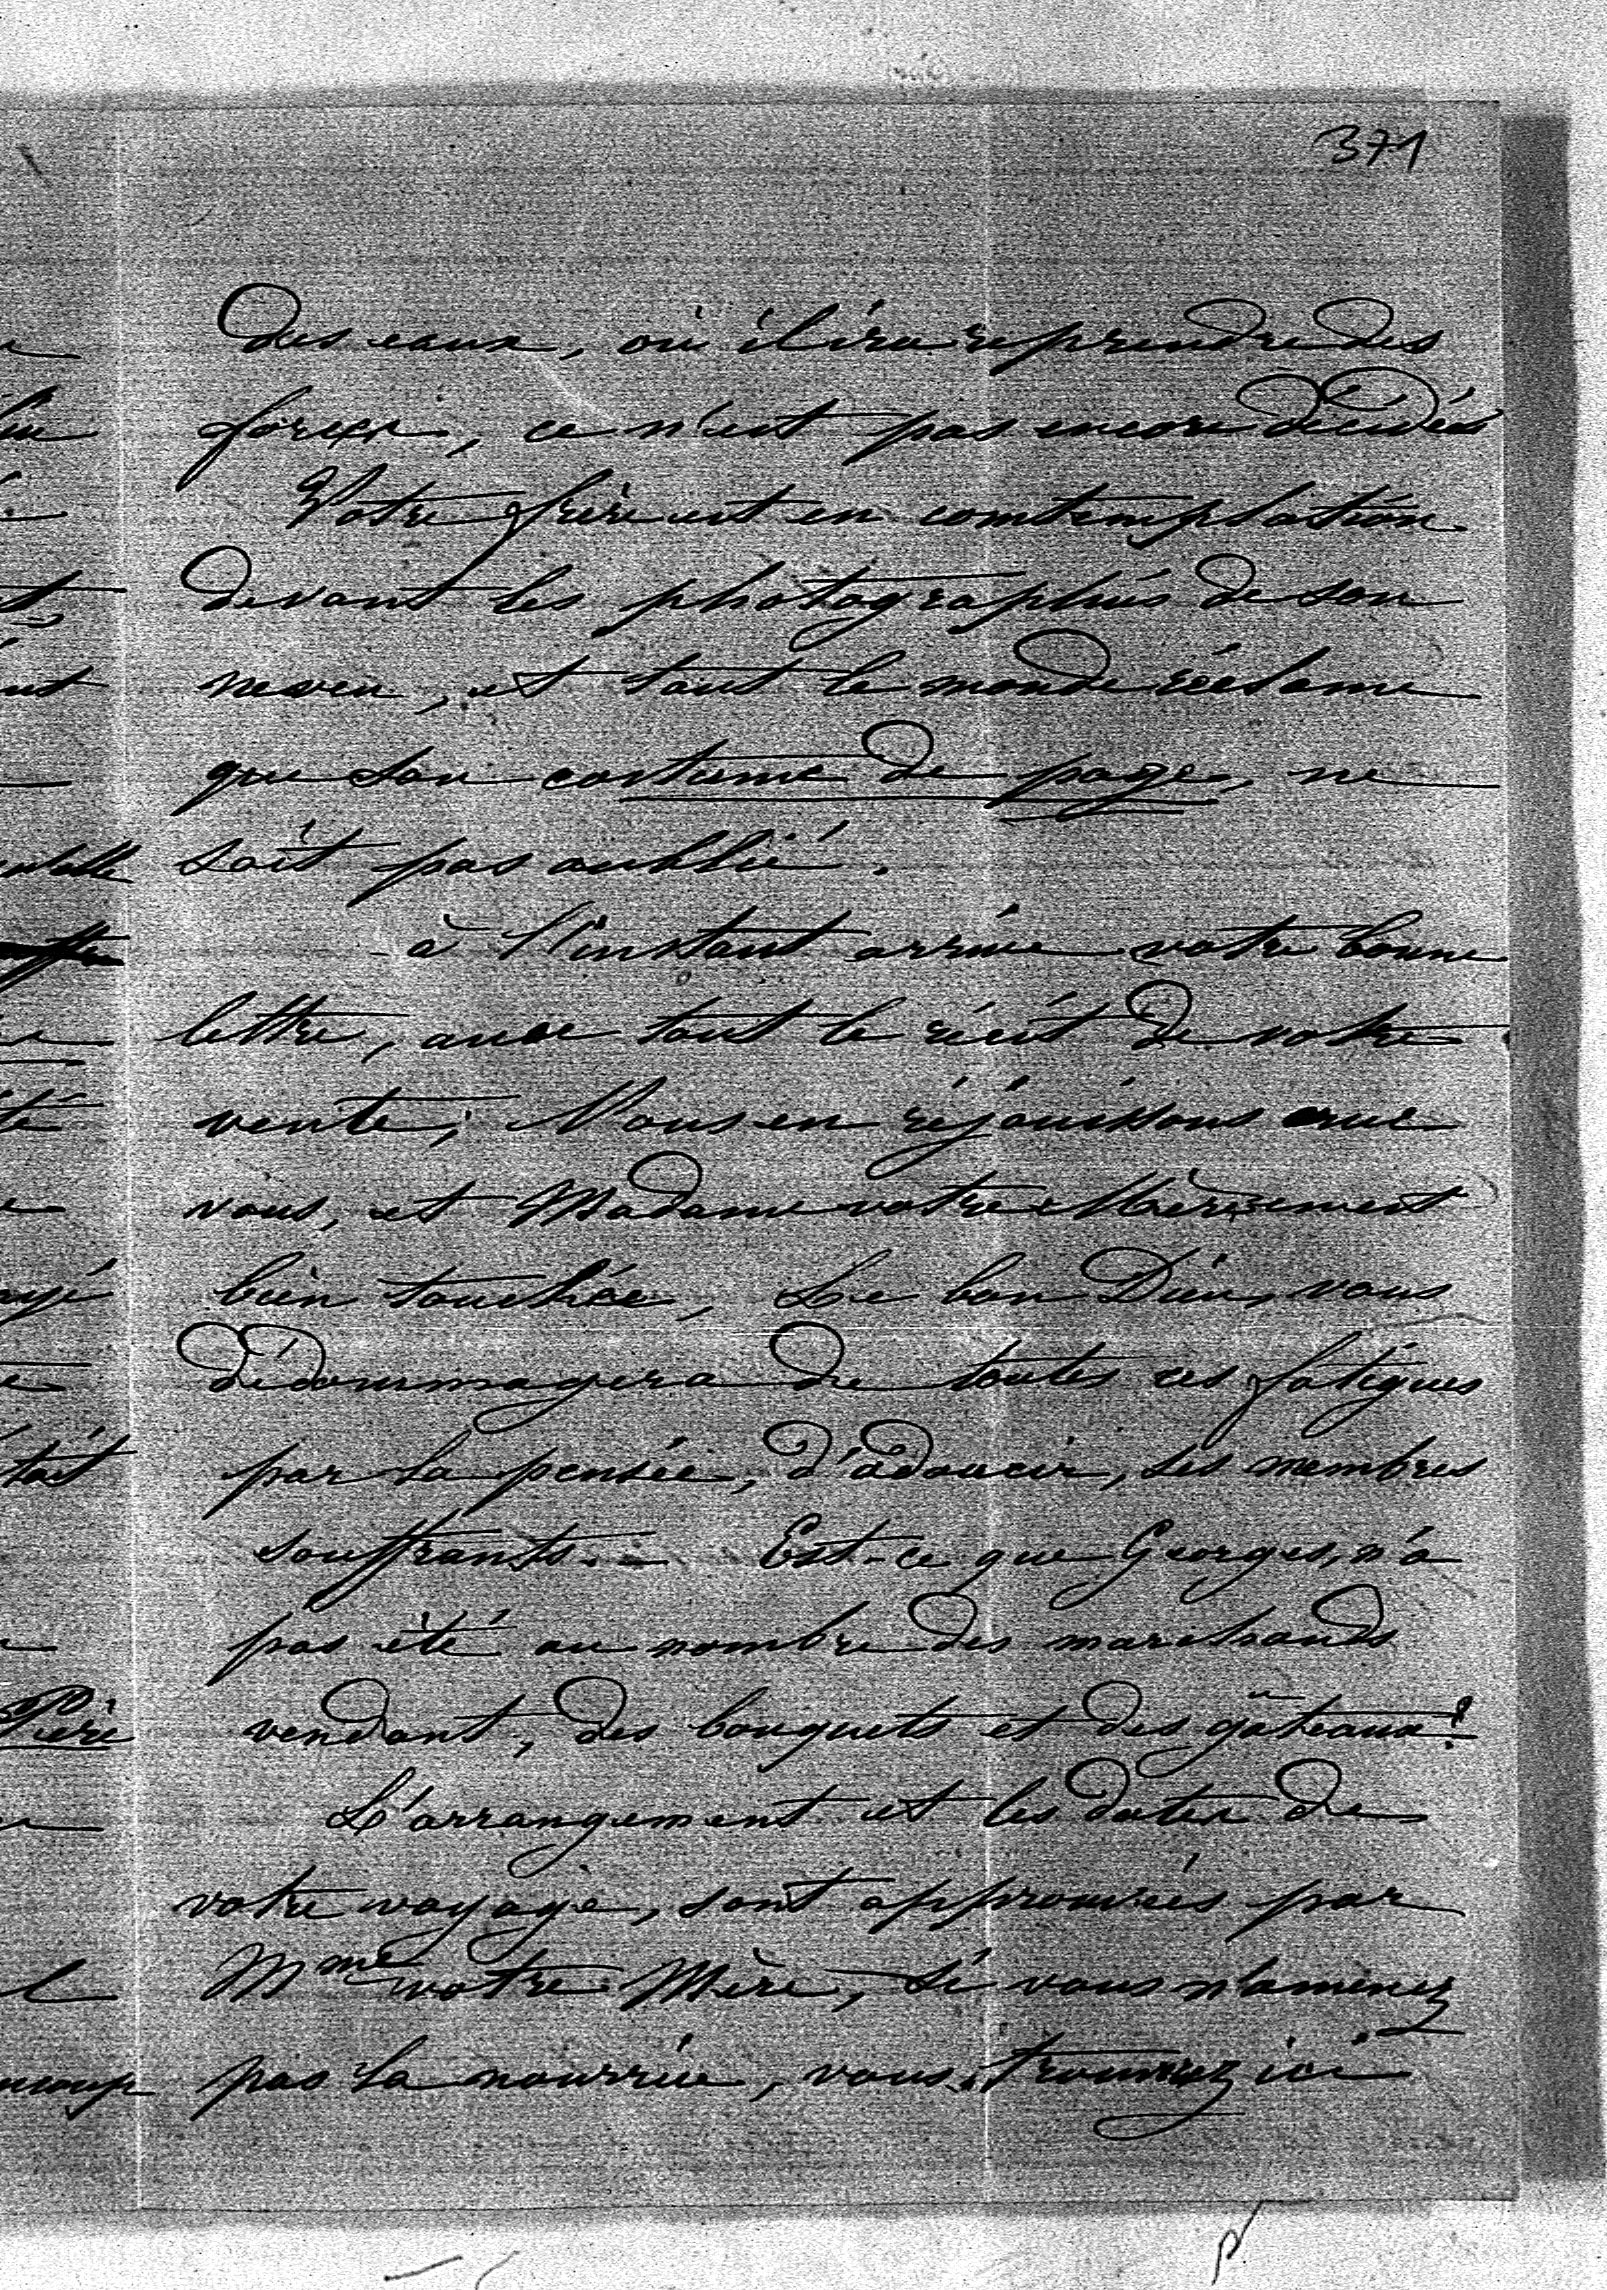 371
des eaux, où il ira reprendre des
forces, ce n'est pas encore décidés
Votre frère est en comtemplation
devant les photographies de son
neveu, et tout le monde réclame
que son costume de page, ne
soit pas oublié.
à l'instant arrive votre bonne
lettre, avec tout le récit de votre
vente; Nous en réjouissons avec
vous, et Madame votre Mère, en est
bien touchée, Le bon Dieu, vous
dédommagera de toutes ces fatigues
par la pensée, d'adoucir, ses membres
souffrants. — Est-ce que Georges, n'a
pas été au nombre des marchands
vendant, des bouquets et des gâteaux?
L'arrangement et les dates de
votre voyage, sont approuvés par
Mme votre Mère, si vous n'amenez
pas la nourrice, vous trouverez ici